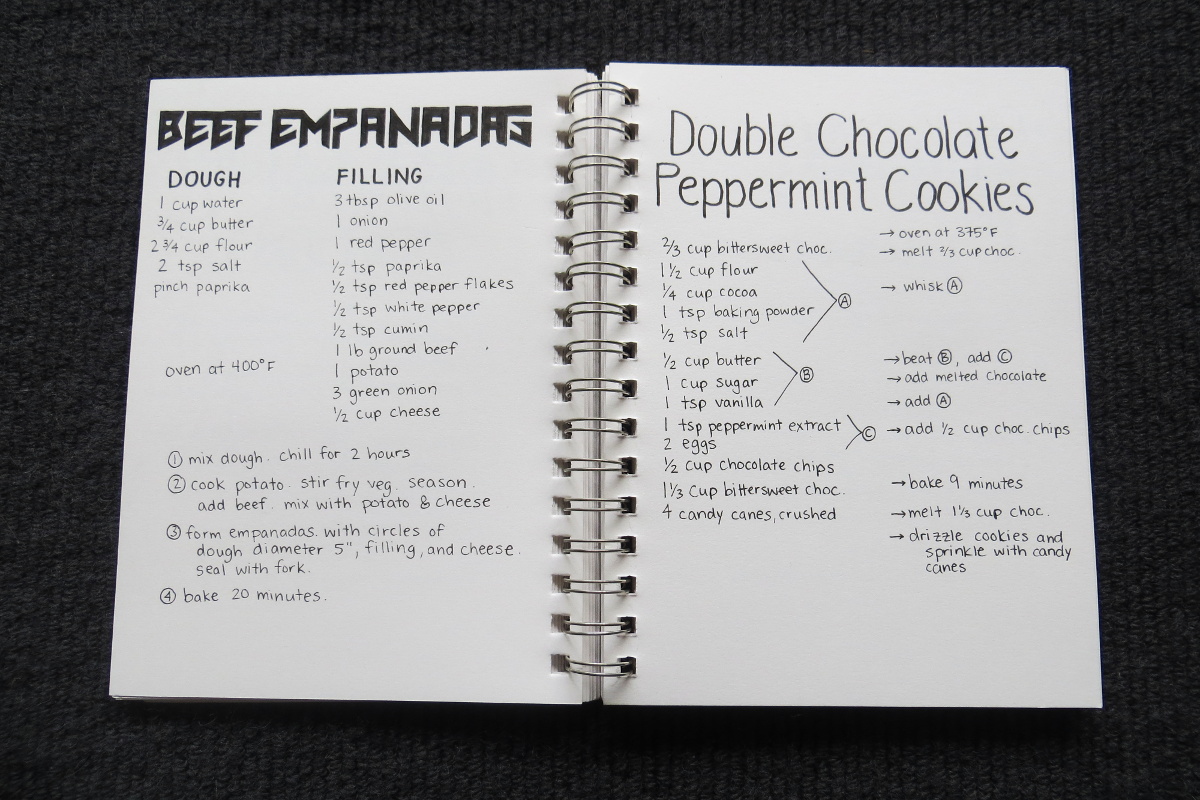 BEEF EMPANADAS
DOUGH
1 cup water
3/4 cup butter
2 3/4 cup flour
2 tsp salt
pinch paprika
oven at 400°F
FILLING
3 tbsp olive oil
1 onion
1 red pepper
1/2 tsp paprika
1/2 tsp red pepper flakes
1/2 tsp white pepper
1/2 tsp cumin
1 lb ground beef
1 potato
3 green onion
1/2 cup cheese
① mix dough. chill for 2 hours
② cook potato. stir fry veg. season.
add beef. mix with potato & cheese
③ form empanadas. with circles of
dough diameter 5", filling, and cheese.
seal with fork.
④ bake 20 minutes.
Double Chocolate
Peppermint Cookies
2/3 cup bittersweet choc.
1 1/2 cup flour
1/4 cup cocoa
1 tsp baking powder
1/2 tsp salt
Ⓐ
1/2 cup butter
1 cup sugar
1 tsp vanilla
Ⓑ
1 tsp peppermint extract
2 eggs
Ⓒ
1/2 cup chocolate chips
1 1/3 cup bittersweet choc.
4 candy canes, crushed
→ oven at 375°F
→ melt 2/3 cup choc.
→ whisk Ⓐ
→ beat Ⓑ, add Ⓒ
→ add melted chocolate
→ add Ⓐ
→ add 1/2 cup choc. chips
→ bake 9 minutes
→ melt 1 1/3 cup choc.
→ drizzle cookies and
sprinkle with candy
canes